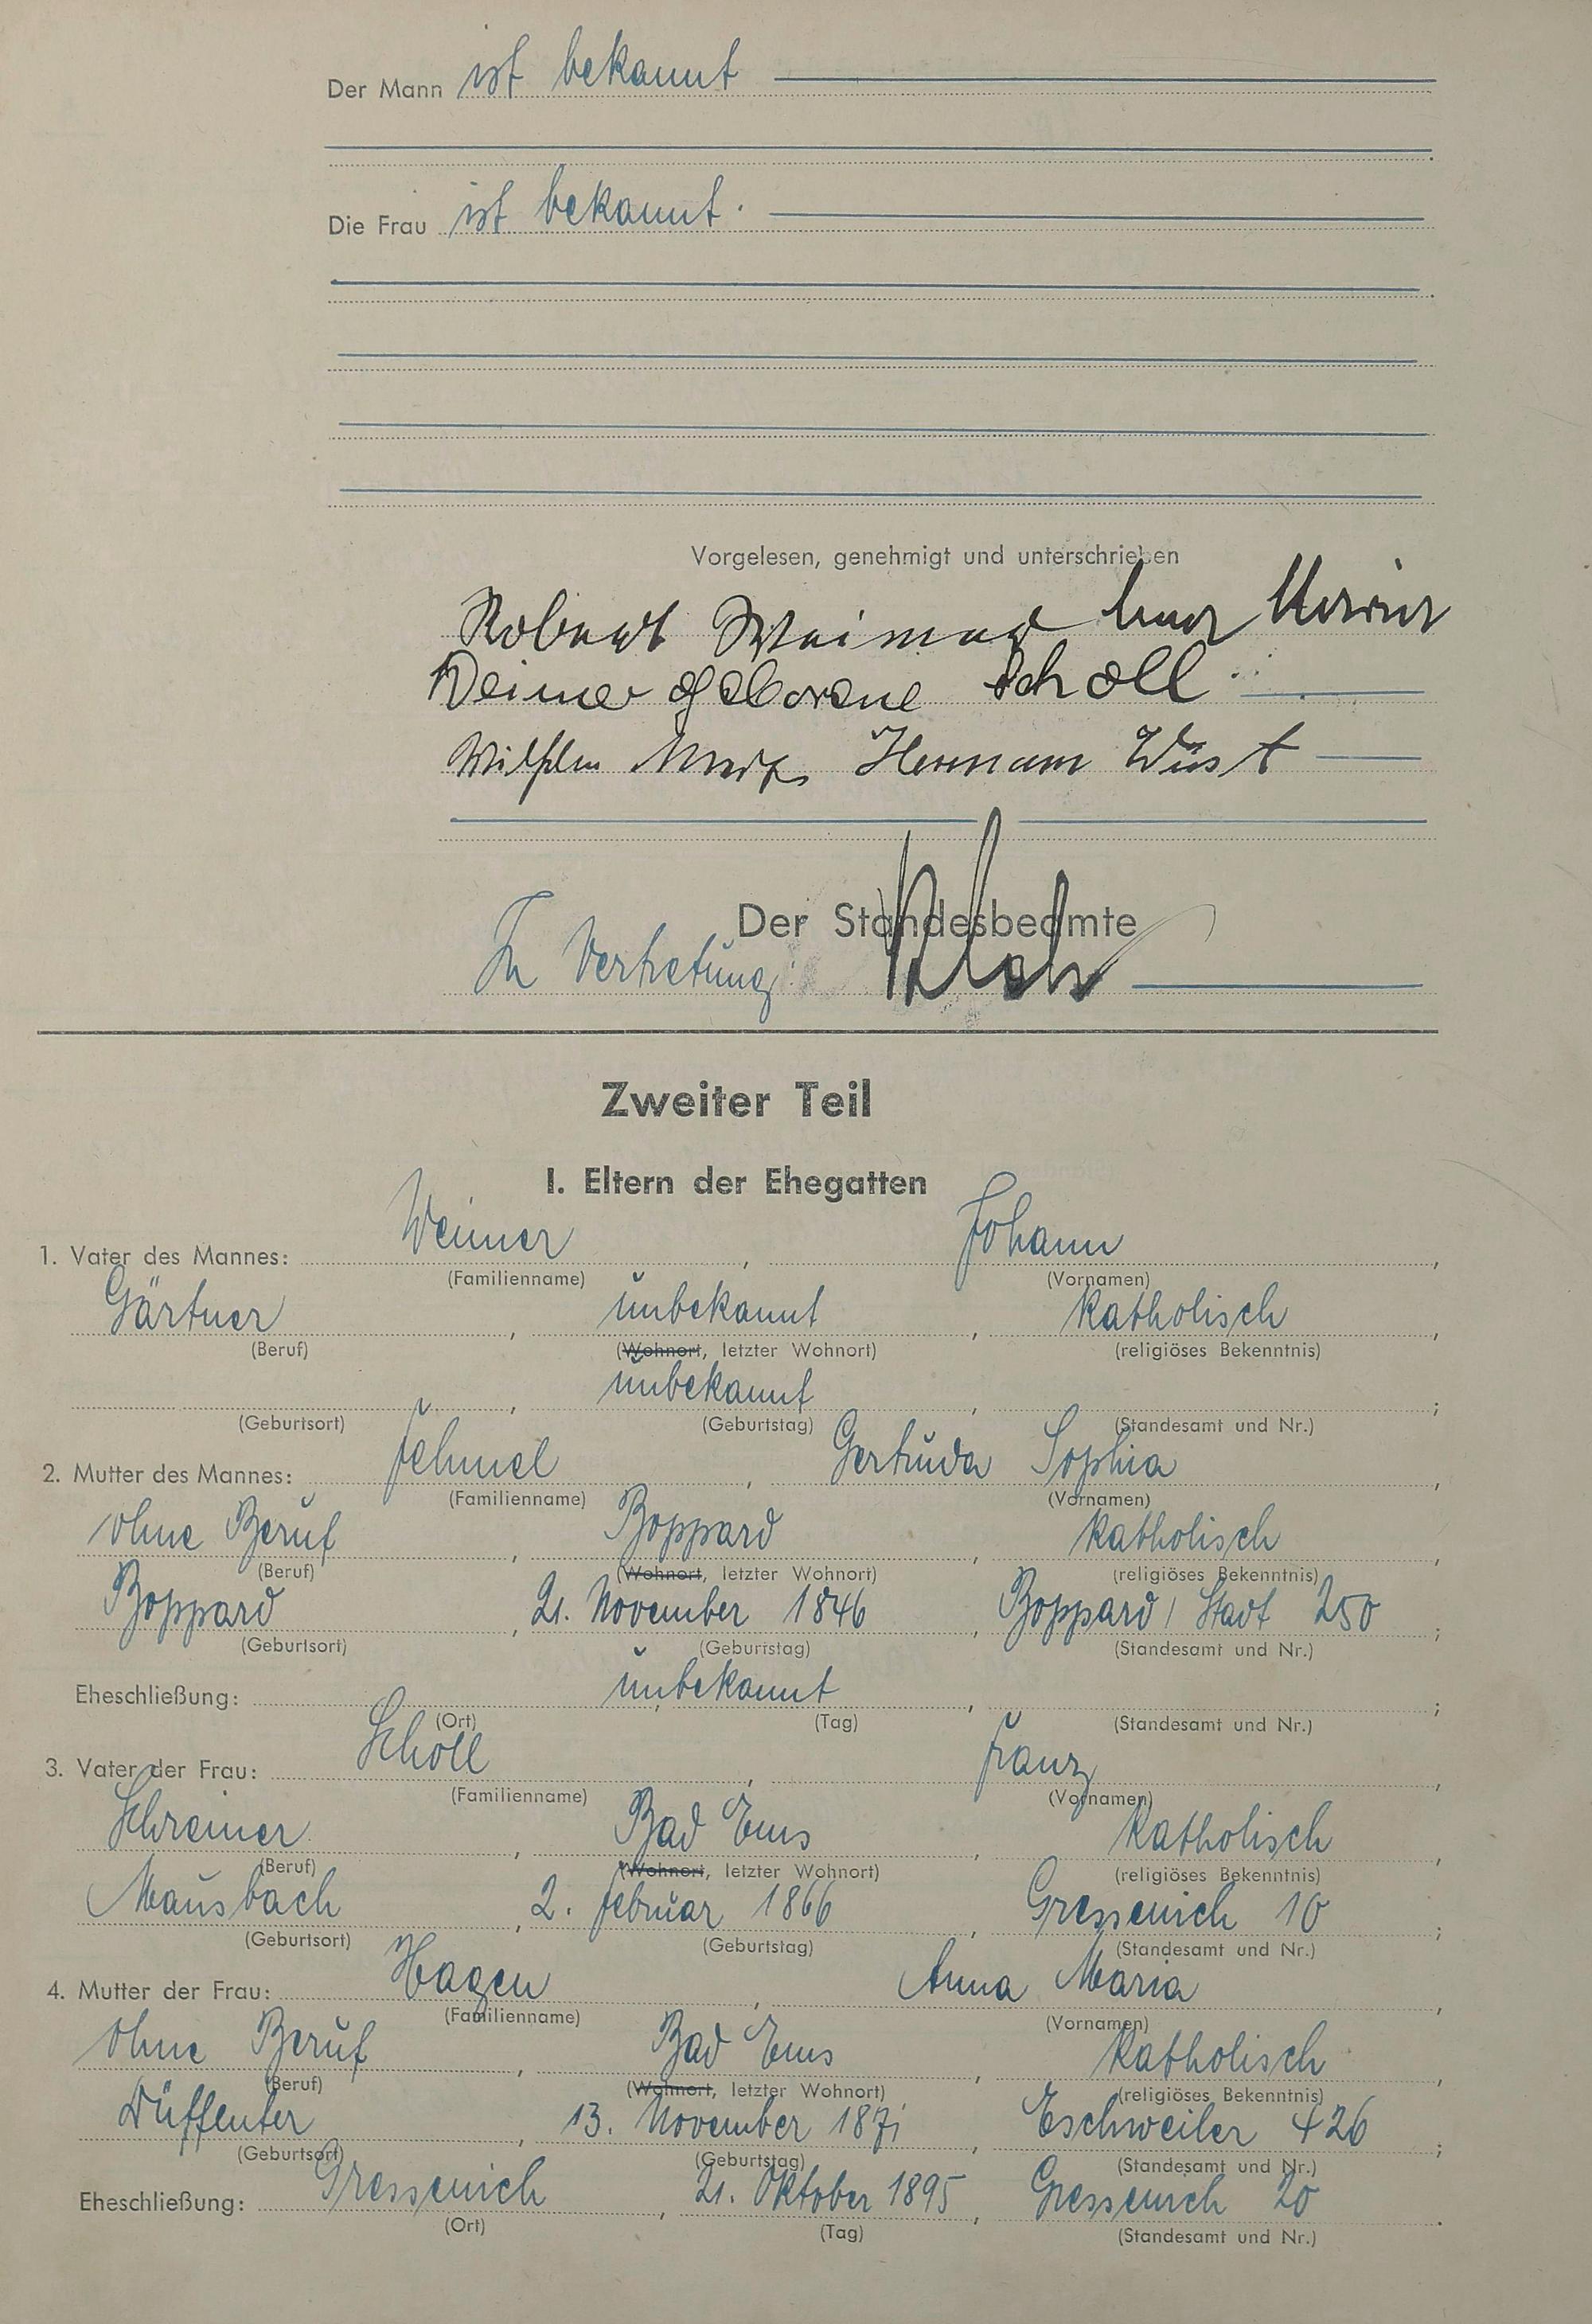 Der Mann ist bekannt
Die Frau ist bekannt.
Vorgelesen, genehmigt und unterschrieben
Robert Weimer
Weimer geborene Scholl
Wilhelm Hermann Wüst
Der Standesbeamte
In Vertretung:
Zweiter Teil
I. Eltern der Ehegatten
1. Vater des Mannes: Weimer, Johann,
(Familienname) (Vornamen)
Gärtner, unbekannt, katholisch,
(Beruf) (Wohnort, letzter Wohnort) (religiöses Bekenntnis)
, unbekannt, ;
(Geburtsort) (Geburtstag) (Standesamt und Nr.)
2. Mutter des Mannes: , Gertruda Sophia,
(Familienname) (Vornamen)
ohne Beruf, Boppard, katholisch,
(Beruf) (Wohnort, letzter Wohnort) (religiöses Bekenntnis)
Boppard, 21. November 1846, Boppard/Stadt 250;
(Geburtsort) (Geburtstag) (Standesamt und Nr.)
Eheschließung: unbekannt, ;
(Ort) (Tag) (Standesamt und Nr.)
3. Vater der Frau: Scholl, Franz,
(Familienname) (Vornamen)
Schreiner, Bad Ems, katholisch,
(Beruf) (Wohnort, letzter Wohnort) (religiöses Bekenntnis)
Mausbach, 2. Februar 1866, Gressenich 10;
(Geburtsort) (Geburtstag) (Standesamt und Nr.)
4. Mutter der Frau: Hagen, Anna Maria,
(Familienname) (Vornamen)
ohne Beruf, Bad Ems, katholisch,
(Beruf) (Wohnort, letzter Wohnort) (religiöses Bekenntnis)
Düffenter, 13. November 1871, Eschweiler 426;
(Geburtsort) (Geburtstag) (Standesamt und Nr.)
Eheschließung: Gressenich, 21. Oktober 1895, Gressenich 20.
(Ort) (Tag) (Standesamt und Nr.)